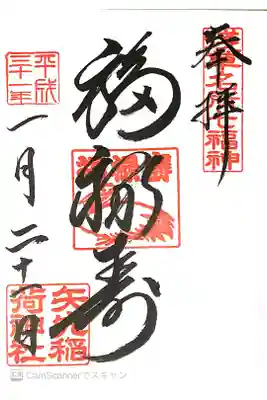 奉拝
福禄寿
矢先稲
荷神社
平成
三十一年
一月二十一日
CamScannerでスキャン